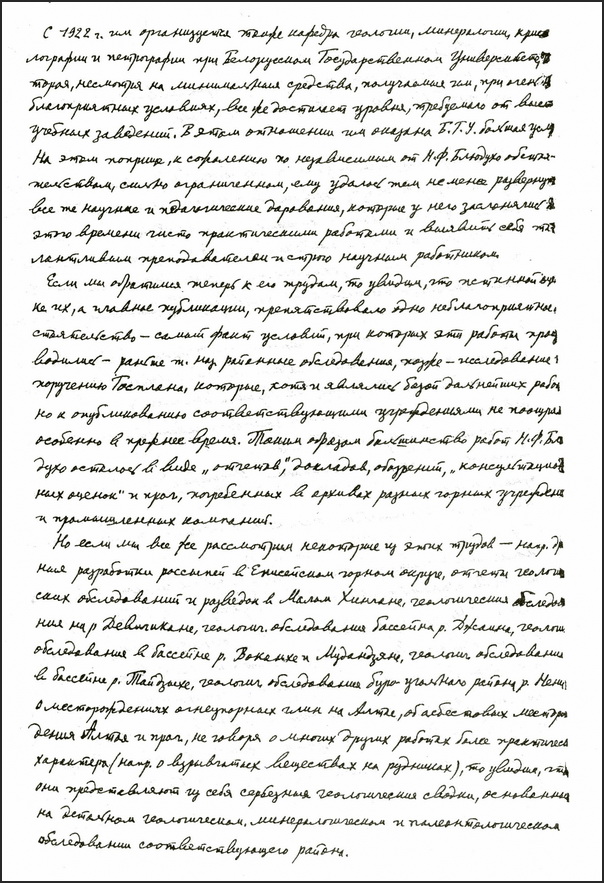 С 1922 г. им организуется также кафедра геологии, минералогии, крис
лографии и петрографии при Белорусском Государственном Университете,
торая, несмотря на минимальные средства, получаемые им, при очень
благоприятных условиях, все же достигает уровня, требуемого от высш
учебных заведений. В этом отношении им оказана Б.Г.У. большая усл
На этом поприще, к сожалению по независимым от Н.Ф. Блюдухо обстоя-
тельствам, сильно ограниченном, ему удалось тем не менее развернут
все же научные и педагогические дарования, которые у него заслонялись
этого времени чисто практическими работами и выявить себя та
лантливым преподавателем и строго научным работником.
Если мы обратимся теперь к его трудам, то увидим, что истинной
ке их, а главное публикации, препятствовало одно неблагоприятное
стоятельство – самый факт условий, при которых эти работы прои
водились – раньше т. наз. районные обследования, позже – исследования
поручению Госплана, которые, хотя и являлись базой дальнейших рабо
но к опубликованию соответствующими учреждениями не поощрял
особенно в прежнее время. Таким образом большинство работ Н.Ф. Блю
духо осталось в виде „отчетов", докладов, обозрений, „консультацион
ных оценок" и проч., погребенных в архивах разных горных учрежден
и промышленных компаний.
Но если мы все же рассмотрим некоторые из этих трудов – напр.
ния разработки россыпей в Енисейском горном округе, отчеты геологи
ских обследований и разведок в Малом Хингане, геологические обследов
ния на р Девятикане, геологич. обследования бассейна р. Джаина, геологич
обследования в бассейне р. и Мудандзян, геологич. обследования
в бассейне р. Тайдзихе, геологич. обследование буро-угольного района р.
о месторождениях огнеупорных глин на Алтае, об асбестовых местор
дениях Алтая и проч., не говоря о многих других работах более практическ
характера (напр. о взрывчатых веществах на рудниках), то увидим, что
они представляют из себя серьезные геологические сводки, основанные
на детальном геологическом, минералогическом и палеонтологическом
обследовании соответствующего района.